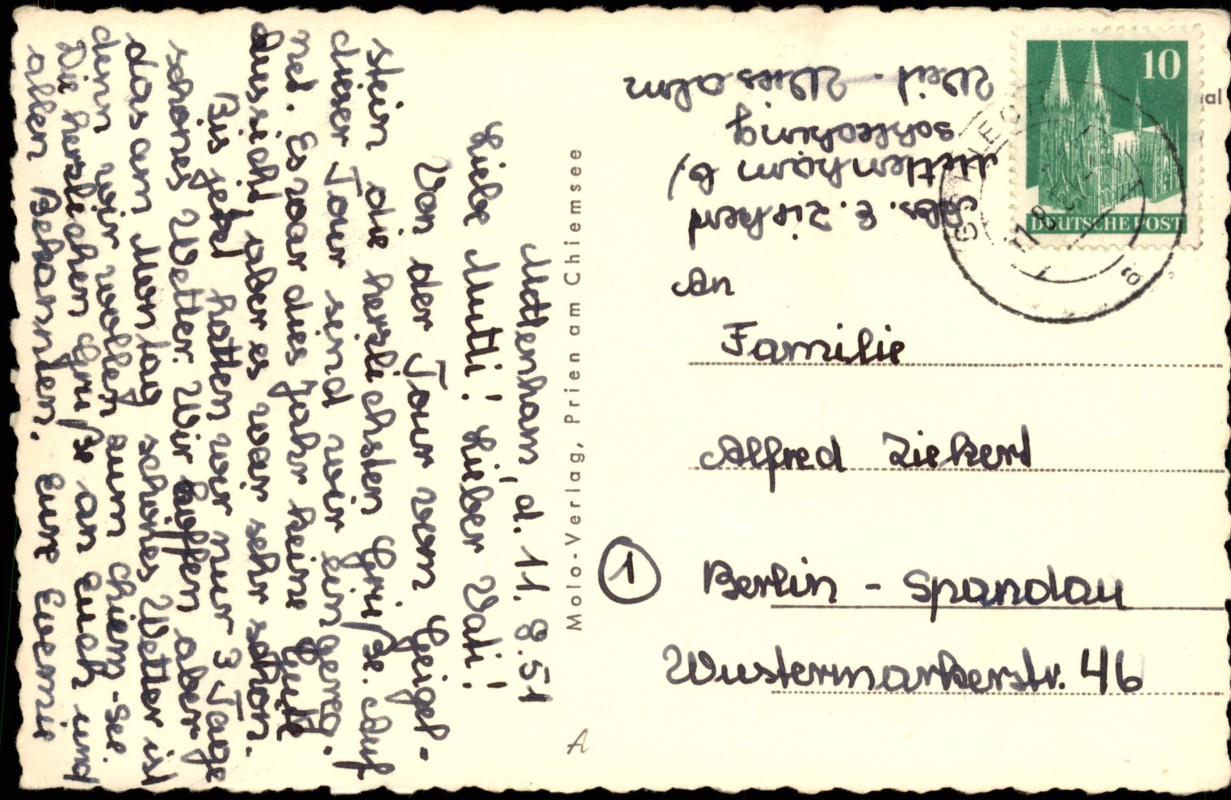 Mettenham, d. 11. 8. 51
Liebe Mutti! Lieber Vati!
Von der Tour vom Geigel-
stein die herzlichsten Grüße. Auf
dieser Tour sind wir
met. Es war dies Jahr keine
Aussicht aber es war sehr schön.
Bis jetzt hatten wir nur 3 Tage
schönes Wetter. Wir hoffen aber
das am Montag schönes Wetter ist
denn wir wollen zum Chiem-see.
Die herzlichen Grüße an Euch und
allen Bekannten. Eure
Molo-Verlag, Prien am Chiemsee
A
Abs. E. Ziekert
Mettenham b/
Schleching
Weit - Wiesalm
10
DEUTSCHE POST
11.8.51
a
An
Familie
Alfred Ziekert
1 Berlin - Spandau
Wustermarkerstr. 46